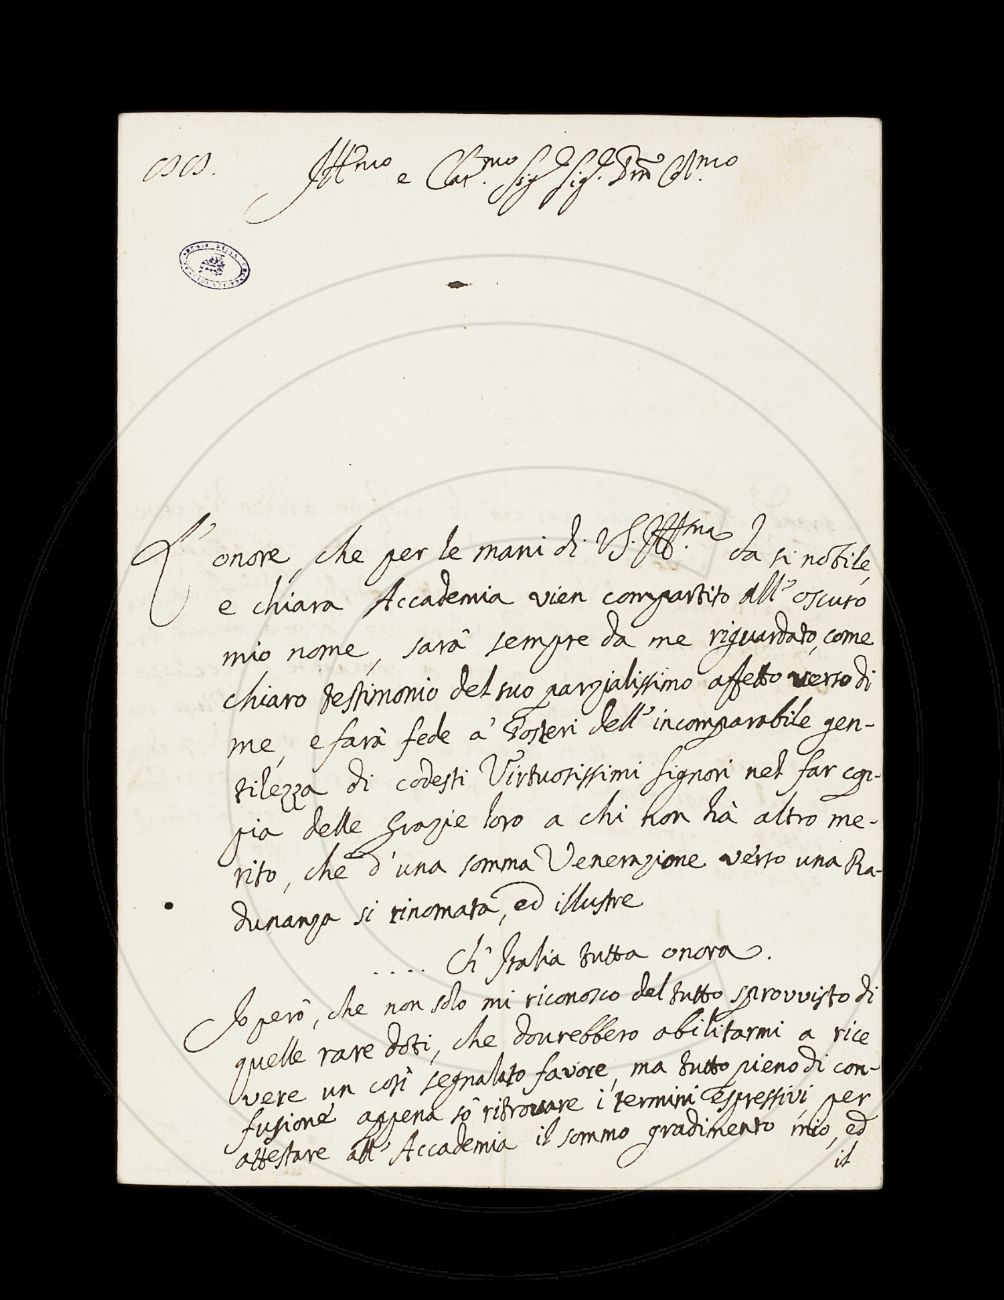 Ill.mo e Car.mo Sig. Sig. P.rone Col.mo
L'onore, che per le mani di VS. Ill.ma da si nobile,
e chiara Accademia vien compartito all'oscuro
mio nome, sarà sempre da me riguardato, come
chiaro testimonio del suo parzialissimo affetto verso di
me, e farà fede a' Posteri dell'incomparabile gen-
tilezza di codesti Virtuosissimi Signori nel far cop-
pia delle Grazie loro a chi non hà altro me-
rito, che d'una somma Venerazione verso una Ra-
dunanza si rinomata, ed illustre
.... Ch'Italia tutta onora.
Io però, che non solo mi riconosco del tutto sprovvisto di
quelle rare doti, che dourebbero abilitarmi a rice
vere un così segnalato favore, ma tutto pieno di con-
fusione appena sò ritrovare i termini espressivi per
attestare all'Accademia il sommo gradimento mio, ed
il